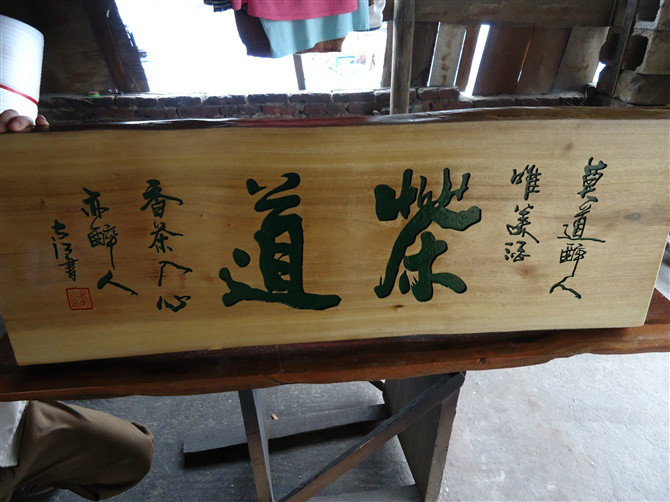 莫道醉人
唯美酒
茶道
香茶入心
亦醉人
書